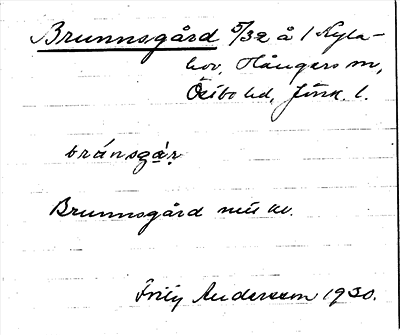 Brunnsgård 5/32 å 1 Kyla-
hov, Hångers sn,
Östbo hd, Jönk. l.
bránsgạ́r
Brunnsgård
Fritz Andersson 1930.